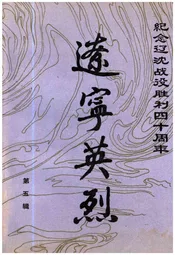 纪念辽沈战役胜利四十周年
遼宁英烈
第五辑